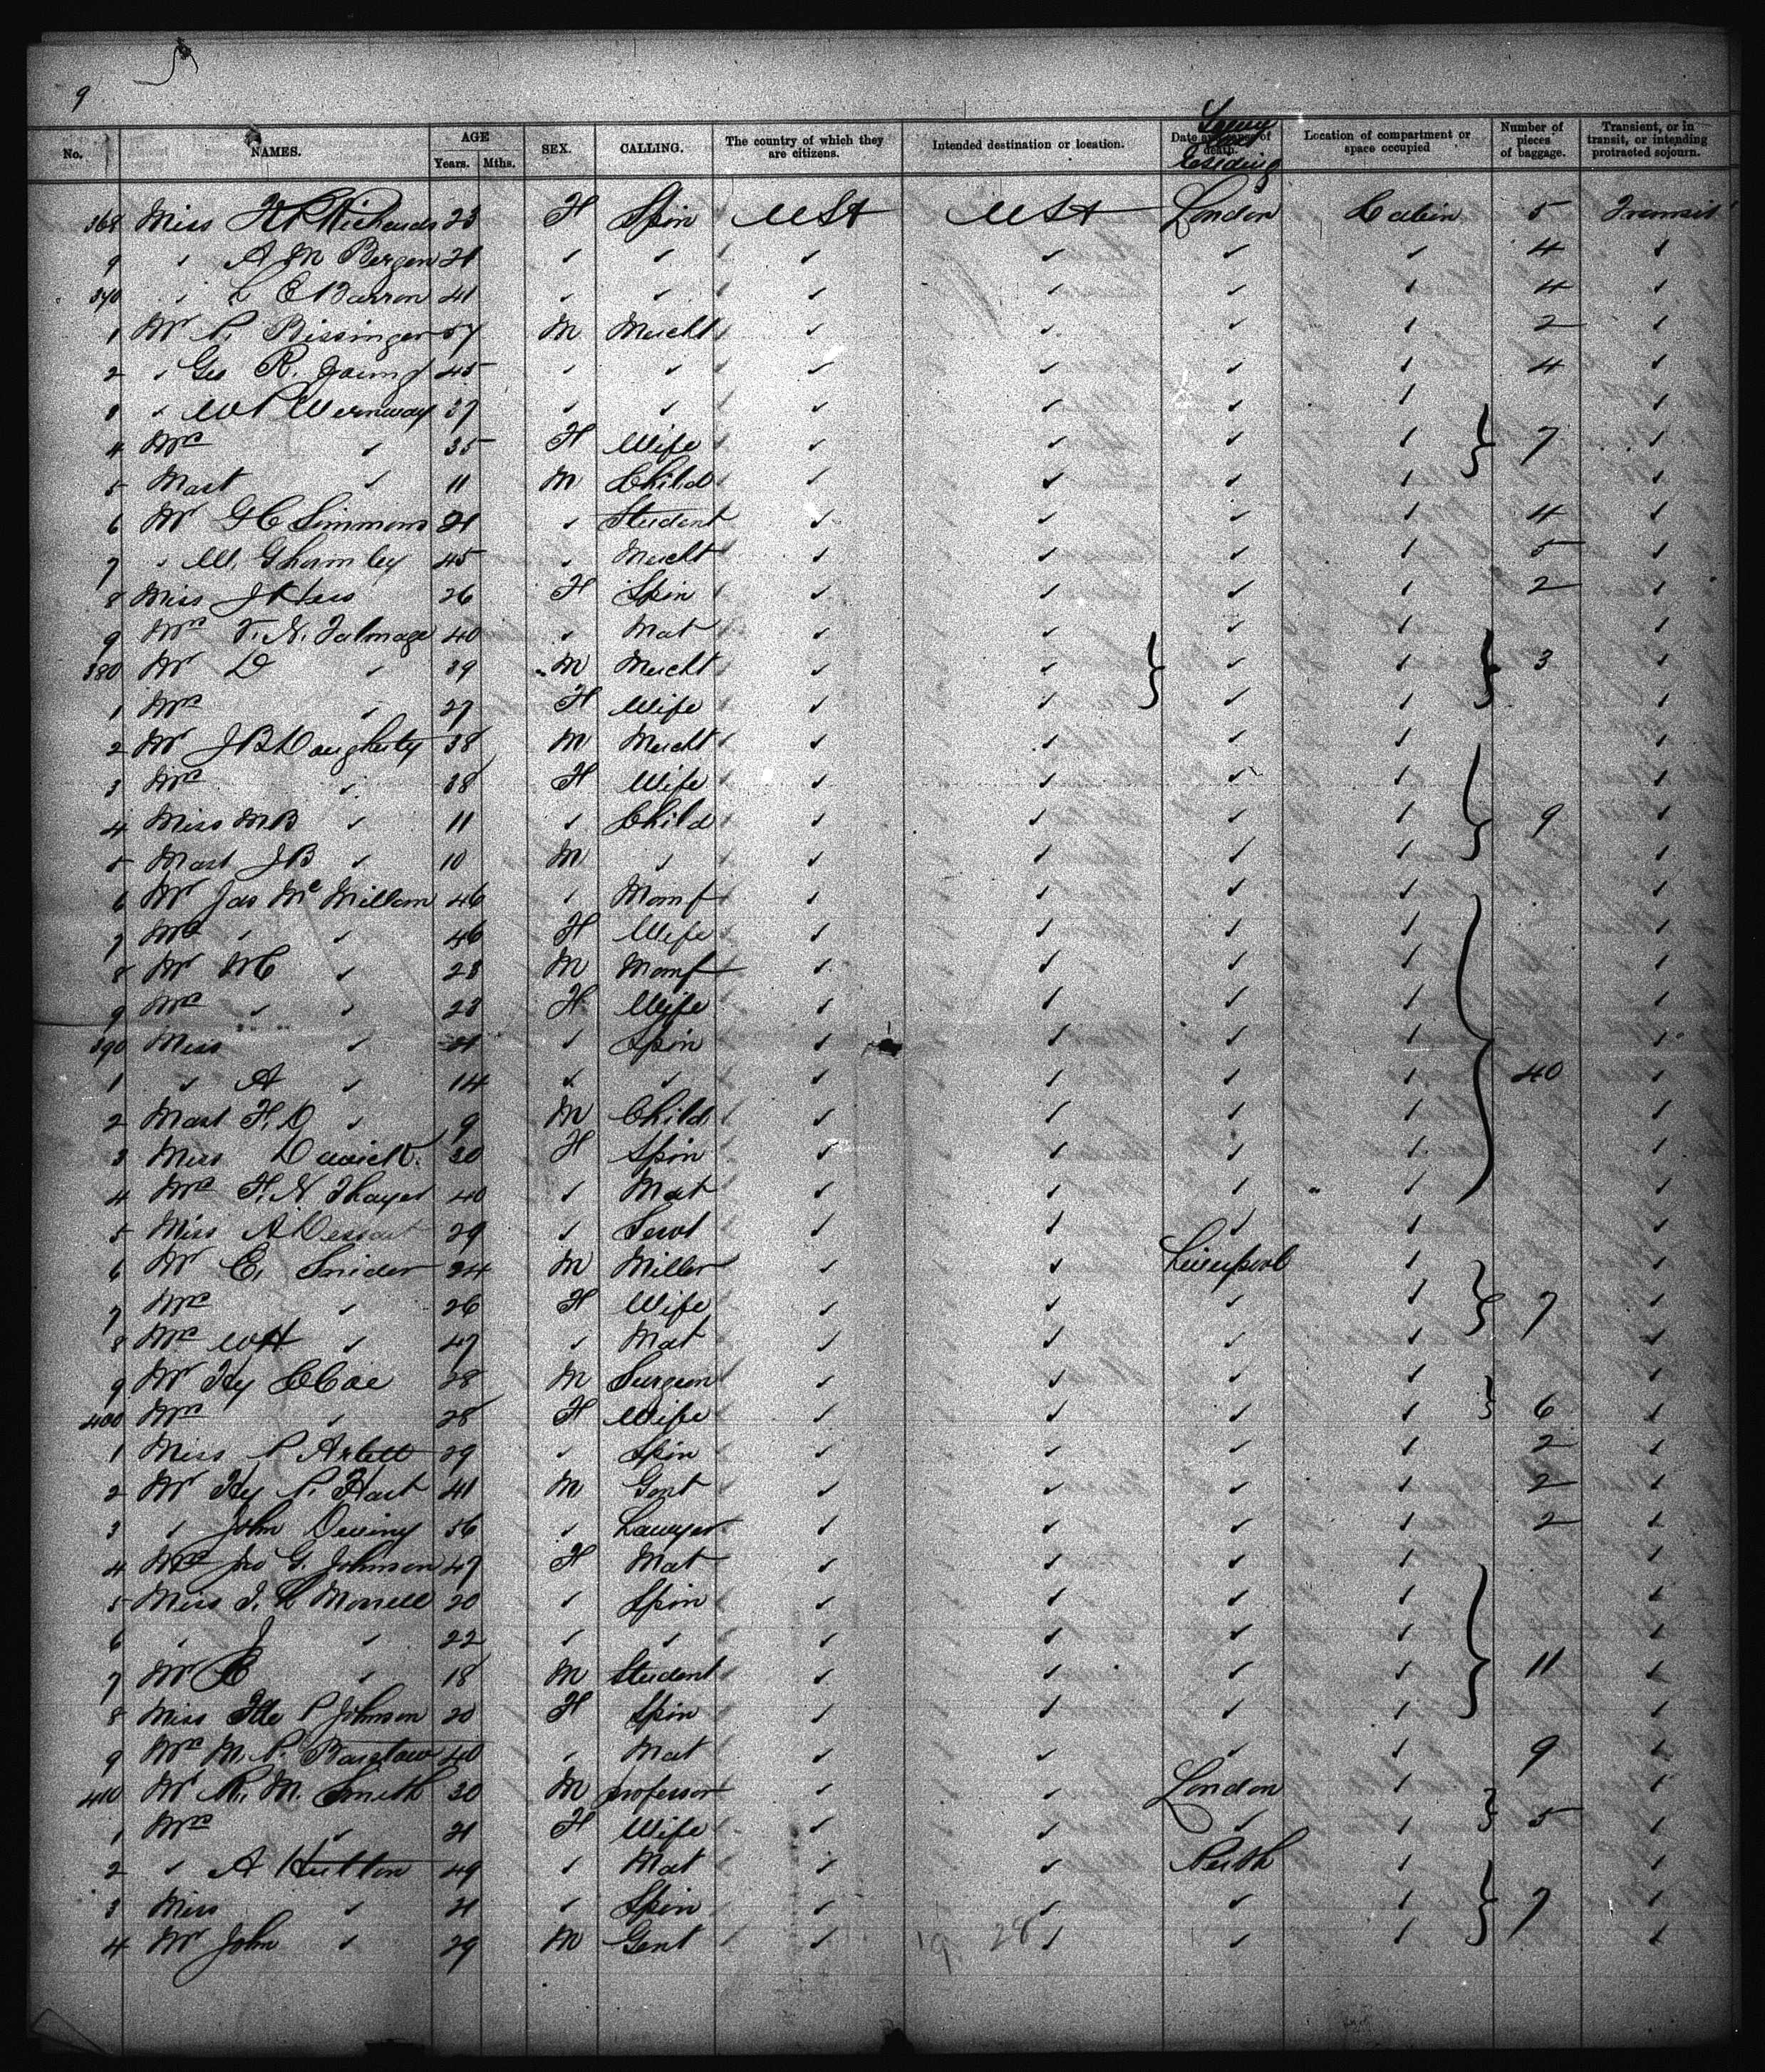 9
No. NAMES. AGE Years. Mths. SEX. CALLING. The country of which they are citizens. Intended destination or location. Date and cause of death. Location of compartment or space occupied Number of pieces of baggage. Transient, or in transit, or intending protracted sojourn.
Residing
368 Miss Richards 23 F Spin USA USA London Cabin 5 Transit
9 ✓ A M Bergen 21 ✓ ✓ ✓ ✓ ✓ ✓ 4 ✓
370 ✓ L E Barron 41 ✓ ✓ ✓ ✓ ✓ ✓ 4 ✓
1 Mr P. Bissinger 57 M Mercht ✓ ✓ ✓ ✓ 2 ✓
2 ✓ Geo R. Young 45 ✓ ✓ ✓ ✓ ✓ ✓ 4 ✓
3 ✓ W P 37 ✓ ✓ ✓ ✓ ✓ ✓ ✓
4 Mrs ✓ 35 F Wife ✓ ✓ ✓ ✓ 7 ✓
5 Mast ✓ 11 M Child ✓ ✓ ✓ ✓ ✓
6 Mr G C Simmons 21 ✓ Student ✓ ✓ ✓ ✓ 4 ✓
7 ✓ W. Ghormley 45 ✓ Mercht ✓ ✓ ✓ ✓ 5 ✓
8 Miss J Hess 26 F Spin ✓ ✓ ✓ ✓ 2 ✓
9 Mrs T. N. Talmage 40 ✓ Mat ✓ ✓ ✓ ✓ ✓
380 Mr D ✓ 39 M Mercht ✓ ✓ ✓ ✓ 3 ✓
1 Mrs ✓ 27 F Wife ✓ ✓ ✓ ✓ ✓
2 Mr J B Daugherty 38 M Mercht ✓ ✓ ✓ ✓ ✓
3 Mrs ✓ 38 F Wife ✓ ✓ ✓ ✓ ✓
4 Miss M B ✓ 11 ✓ Child ✓ ✓ ✓ ✓ 9 ✓
5 Mast J B ✓ 10 M ✓ ✓ ✓ ✓ ✓ ✓
6 Mr Jas McMillan 46 ✓ Manf ✓ ✓ ✓ ✓ ✓
7 Mrs ✓ ✓ 46 F Wife ✓ ✓ ✓ ✓ ✓
8 Mr W C ✓ 28 M Manf ✓ ✓ ✓ ✓ ✓
9 Mrs ✓ ✓ 23 F Wife ✓ ✓ ✓ ✓ ✓
390 Miss ✓ 21 ✓ Spin ✓ ✓ ✓ ✓ ✓
1 ✓ A ✓ 14 ✓ ✓ ✓ ✓ ✓ ✓ 40 ✓
2 Mast F. D ✓ 9 M Child ✓ ✓ ✓ ✓ ✓
3 Miss 30 F Spin ✓ ✓ ✓ ✓ ✓
4 Mrs F. N Thayer 40 ✓ Mat ✓ ✓ ✓ ✓ ✓
5 Miss A Dessart 29 ✓ Servt ✓ ✓ ✓ ✓ ✓
6 Mr E. Snider 24 M Miller ✓ ✓ Liverpool ✓ ✓
7 Mrs ✓ 26 F Wife ✓ ✓ ✓ ✓ 7 ✓
8 Mrs W H ✓ 47 ✓ Mat ✓ ✓ ✓ ✓ ✓
9 Mr Hy C Coe 28 M Surgeon ✓ ✓ ✓ ✓ ✓
400 Mrs ✓ 28 F Wife ✓ ✓ ✓ ✓ 6 ✓
1 Miss P 29 ✓ Spin ✓ ✓ ✓ ✓ 2 ✓
2 Mr Hy P. Hart 41 M Gent ✓ ✓ ✓ ✓ 2 ✓
3 ✓ John Deviny 56 ✓ Lawyer ✓ ✓ ✓ ✓ 2 ✓
4 Mrs Jno G. Johnson 47 F Mat ✓ ✓ ✓ ✓ ✓
5 Miss L Morrell 20 ✓ Spin ✓ ✓ ✓ ✓ ✓
6 ✓ J ✓ 22 ✓ ✓ ✓ ✓ ✓ ✓ ✓
7 Mr E ✓ 18 M Student ✓ ✓ ✓ ✓ 11 ✓
8 Miss P Johnson 20 F Spin ✓ ✓ ✓ ✓ ✓
9 Mrs M. P. Barstow 40 ✓ Mat ✓ ✓ ✓ ✓ 9 ✓
410 Mr R. M. Smith 30 M professor ✓ ✓ London ✓ ✓
1 Mrs ✓ 21 F Wife ✓ ✓ ✓ ✓ 5 ✓
2 ✓ A Hutton 49 ✓ Mat ✓ ✓ Perth ✓ ✓
3 Miss ✓ 21 ✓ Spin ✓ ✓ ✓ ✓ 7 ✓
4 Mr John ✓ 29 M Gent ✓ ✓ ✓ ✓ ✓
19 28